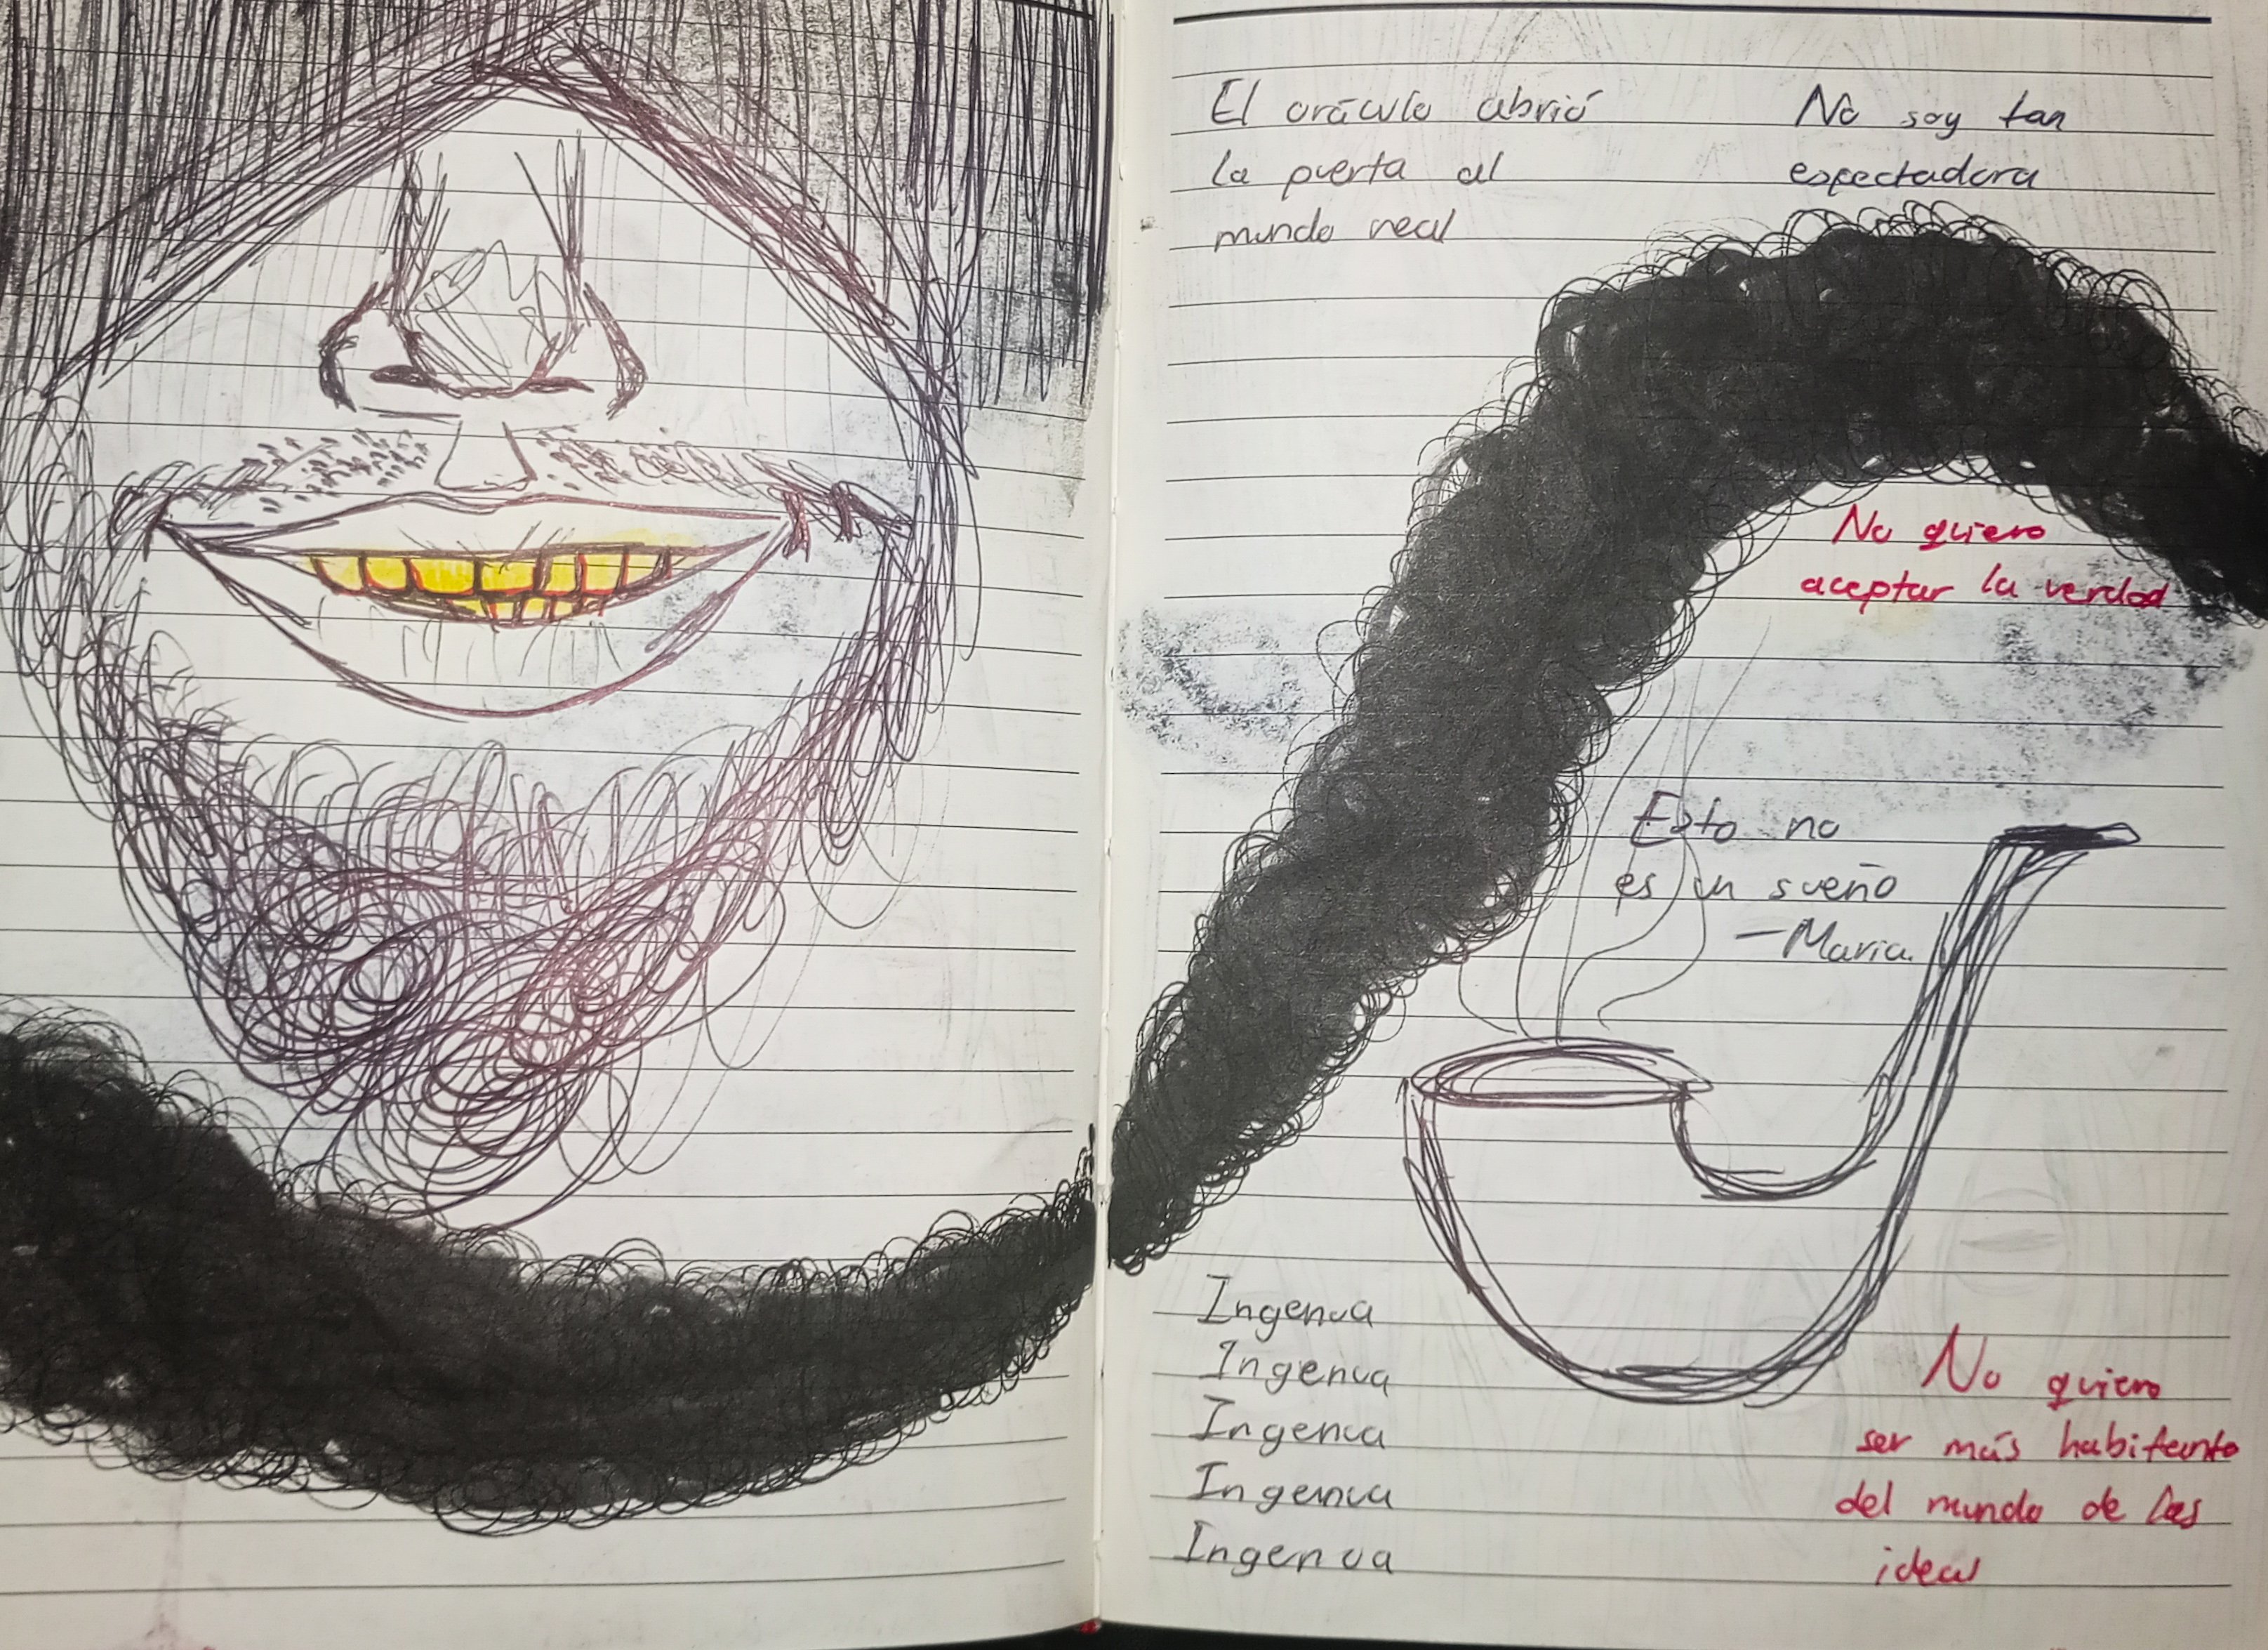 El oráculo abrió
la puerta al
mundo real
No soy tan
espectadora
No quiero
aceptar la verdad
Esto no
es un sueño
—Maria.
Ingenua
Ingenua
Ingenua
Ingenua
Ingenua
No quiero
ser más habitante
del mundo de las
ideas